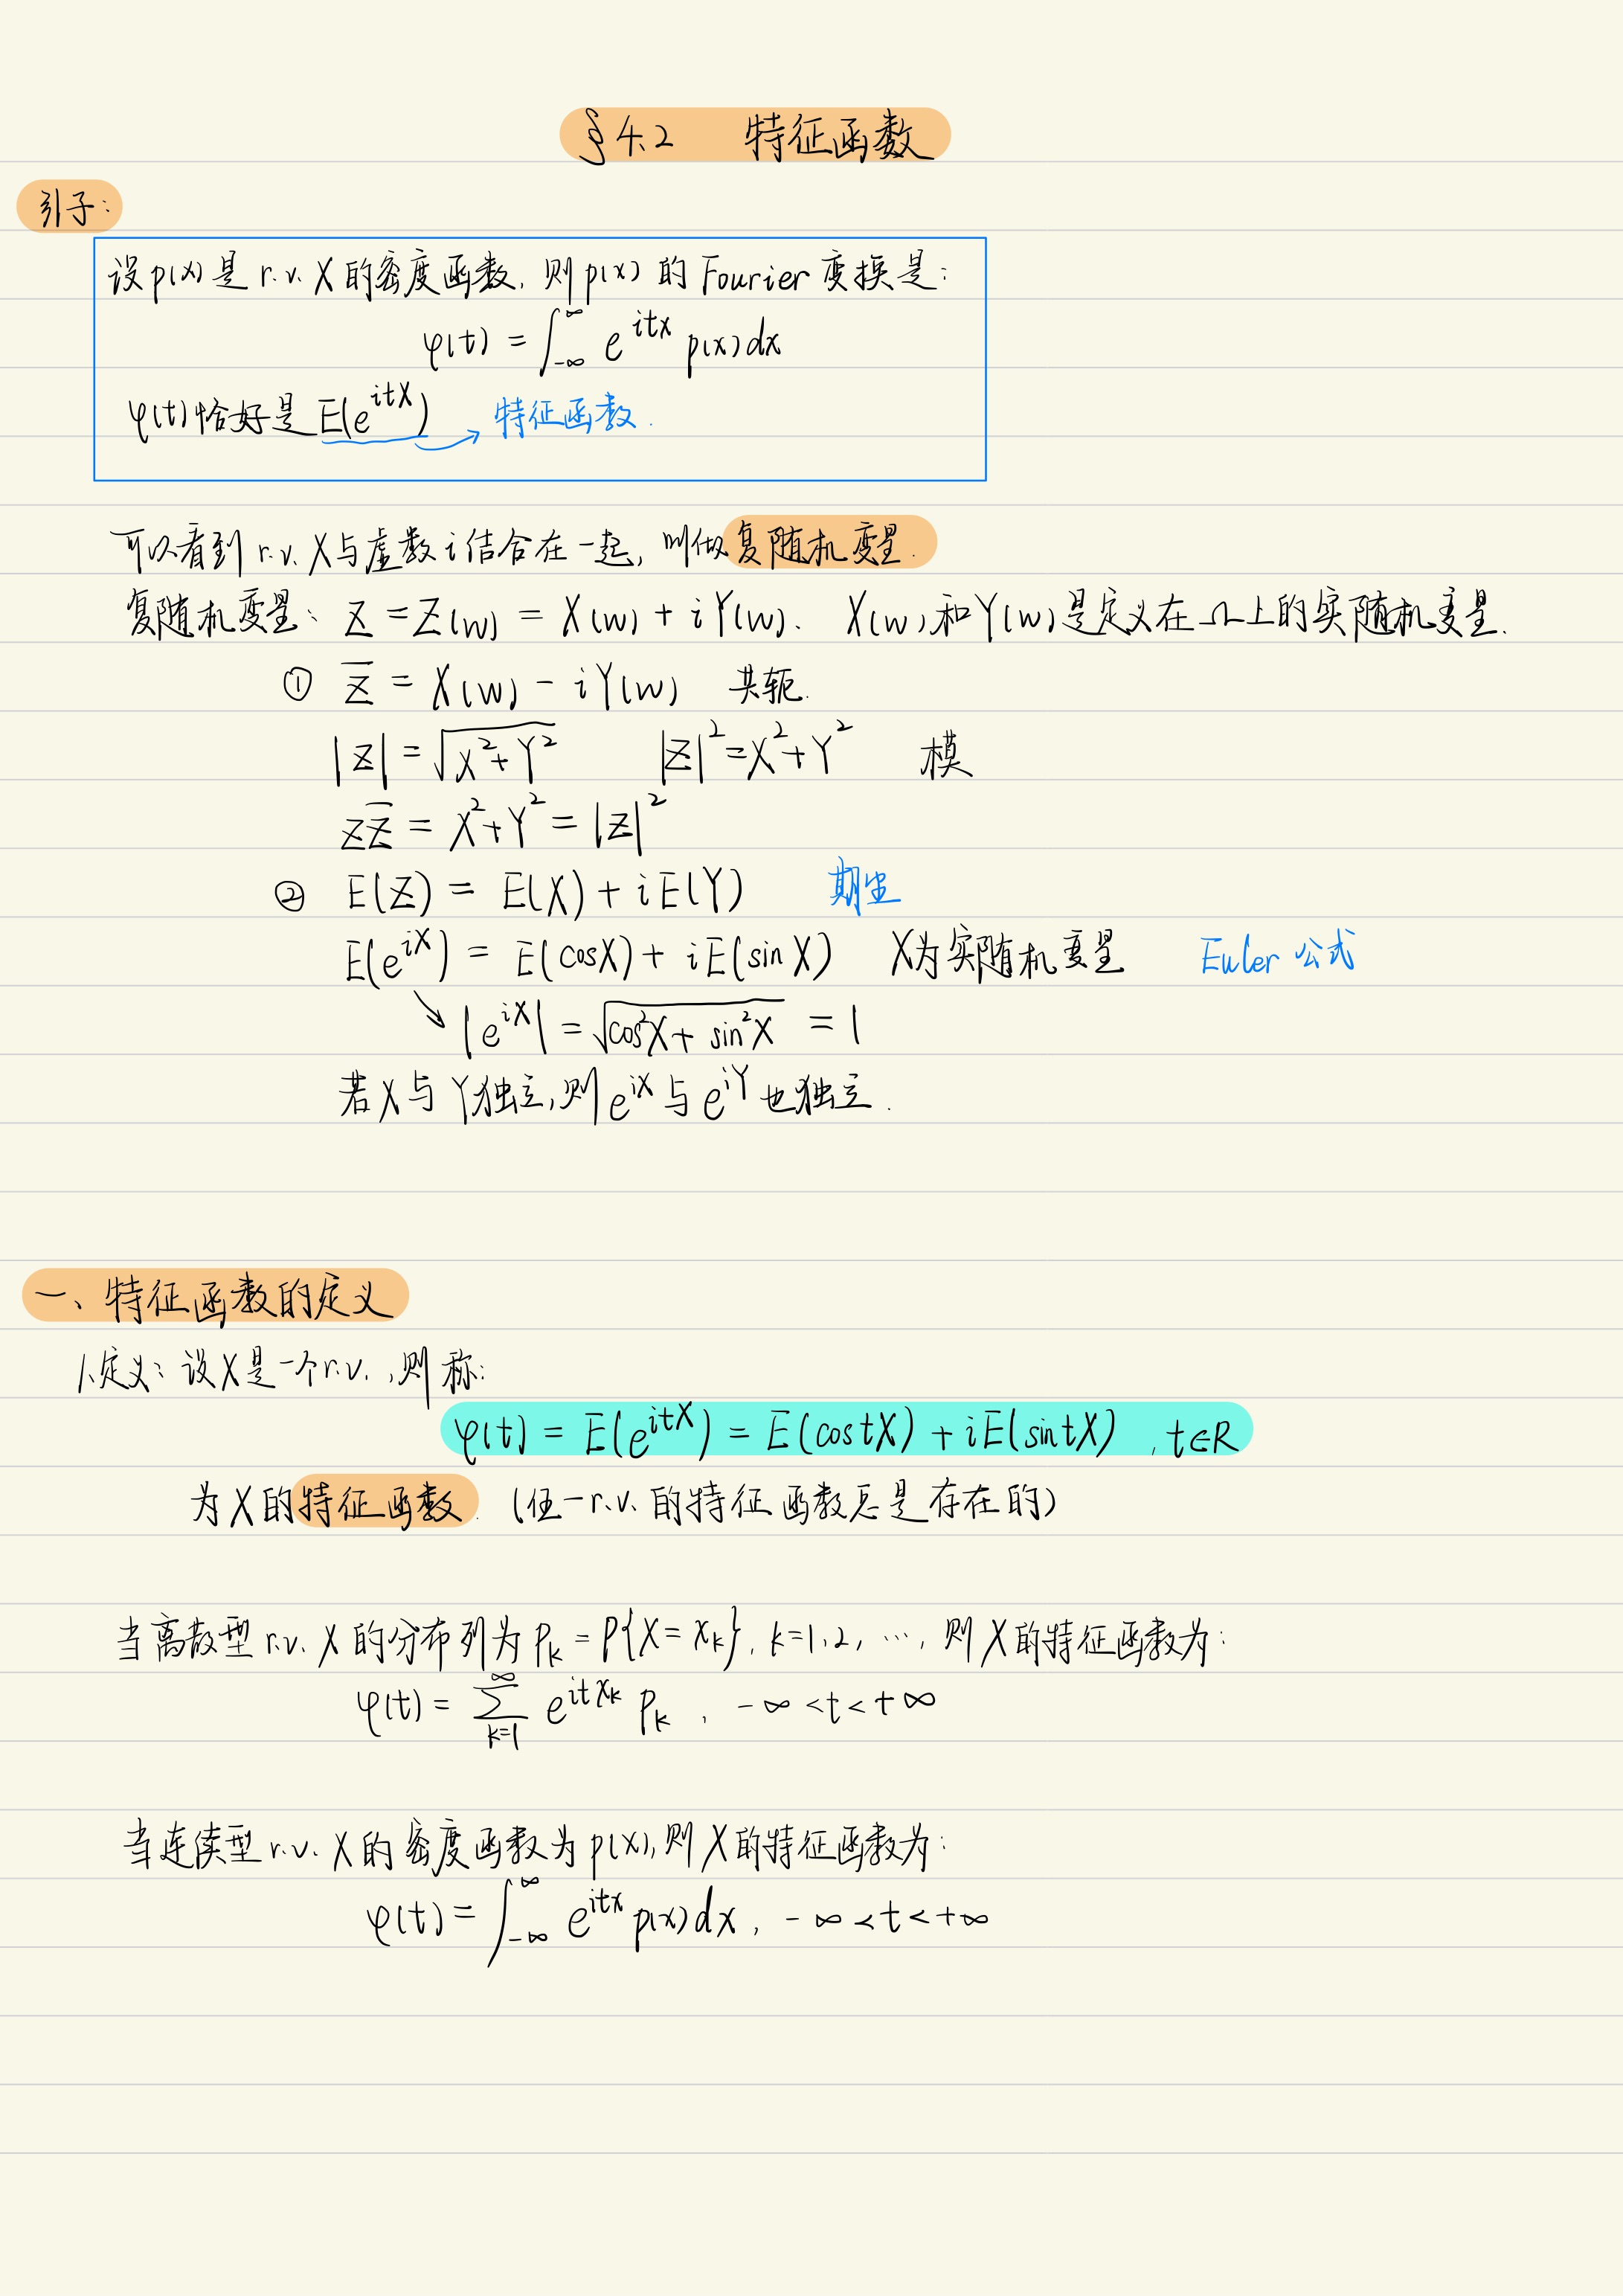 §4.2 特征函数
引子:
设p(x)是r.v.X的密度函数,则p(x)的Fourier变换是:
φ(t) = ∫_{-∞}^{∞} e^{itx} p(x)dx
φ(t)恰好是E(e^{itX}) → 特征函数.
可以看到r.v.X与虚数i结合在一起,叫做复随机变量.
复随机变量: Z = Z(w) = X(w) + iY(w). X(w)和Y(w)是定义在Ω上的实随机变量.
① \overline{Z} = X(w) - iY(w) 共轭.
|Z| = \sqrt{X²+Y²} |Z|² = X²+Y² 模
Z\overline{Z} = X²+Y² = |Z|²
② E(Z) = E(X) + iE(Y) 期望
E(e^{iX}) = E(cosX) + iE(sinX) X为实随机变量 Euler公式
↘ |e^{iX}| = \sqrt{cos²X + sin²X} = 1
若X与Y独立,则e^{iX}与e^{iY}也独立.
一、特征函数的定义
1.定义:设X是一个r.v.,则称:
φ(t) = E(e^{itX}) = E(costX) + iE(sintX) , t∈R
为X的特征函数. (任一r.v.的特征函数总是存在的)
当离散型r.v.X的分布列为P_k = P{X = x_k}, k=1,2,…, 则X的特征函数为:
φ(t) = \sum_{k=1}^{∞} e^{itx_k} P_k , -∞<t<+∞
当连续型r.v.X的密度函数为p(x),则X的特征函数为:
φ(t) = ∫_{-∞}^{∞} e^{itx} p(x)dx, -∞<t<+∞